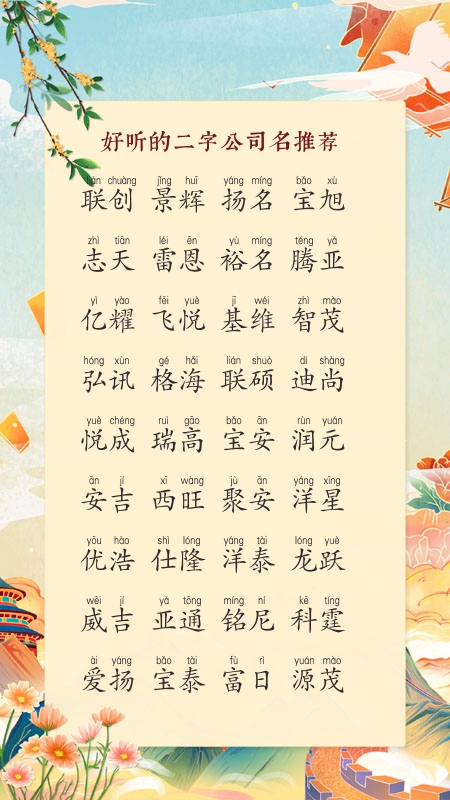 好听的二字公司名推荐
lián chuàng jǐng huī yáng míng bǎo xù
联创 景辉 扬名 宝旭
zhì tiān léi ēn yù míng téng yà
志天 雷恩 裕名 腾亚
yì yào fēi yuè jī wéi zhì mào
亿耀 飞悦 基维 智茂
hóng xùn gé hǎi lián shuò dí shàng
弘讯 格海 联硕 迪尚
yuè chéng ruì gāo bǎo ān rùn yuán
悦成 瑞高 宝安 润元
ān jí xī wàng jù ān yáng xīng
安吉 西旺 聚安 洋星
yōu hào shì lóng yáng tài lóng yuè
优浩 仕隆 洋泰 龙跃
wēi jí yà tōng míng ní kē tíng
威吉 亚通 铭尼 科霆
ài yáng bǎo tài fù rì yuán mào
爱扬 宝泰 富日 源茂